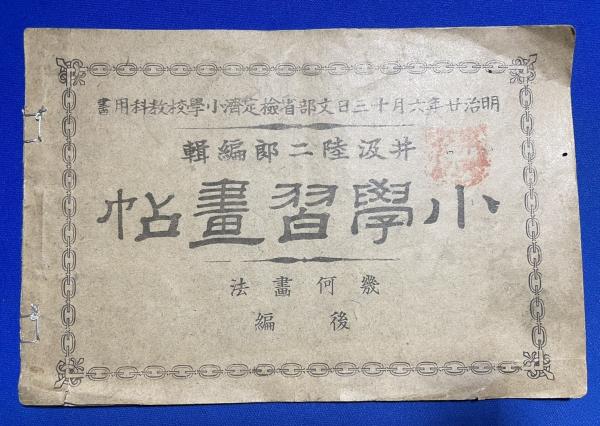 明治廿年六月十三日文部省檢定濟小學校敎科用書
井汲陸二郎編輯
小學習畫帖
幾何畫法
後編